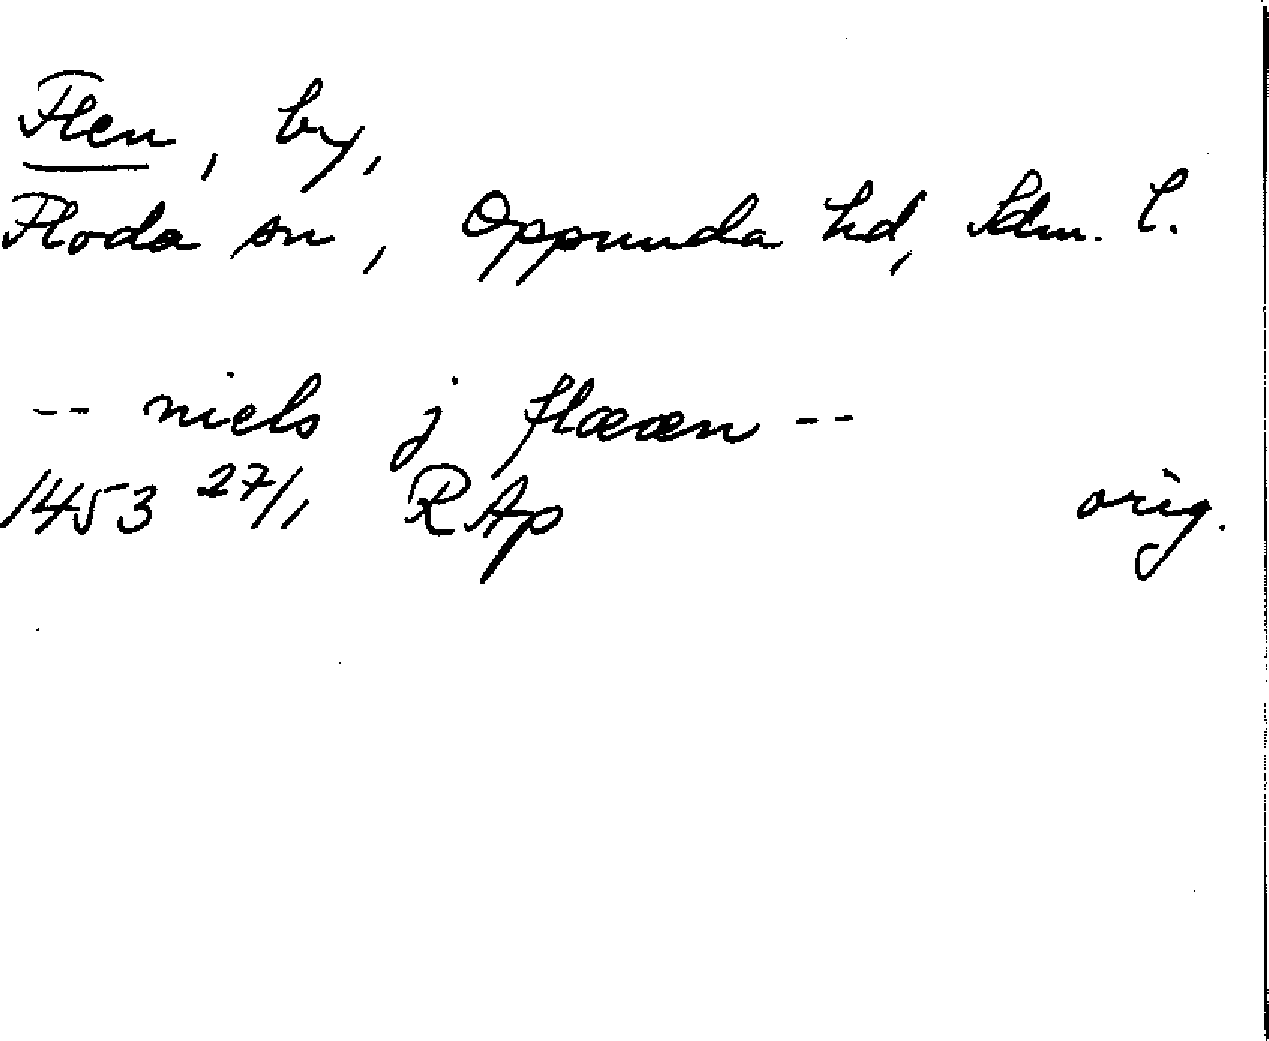 Flen, by,
Floda sn, Oppunda hd, Sdm. l.
-- niels j flææn --
1453 27/1 RAp orig.